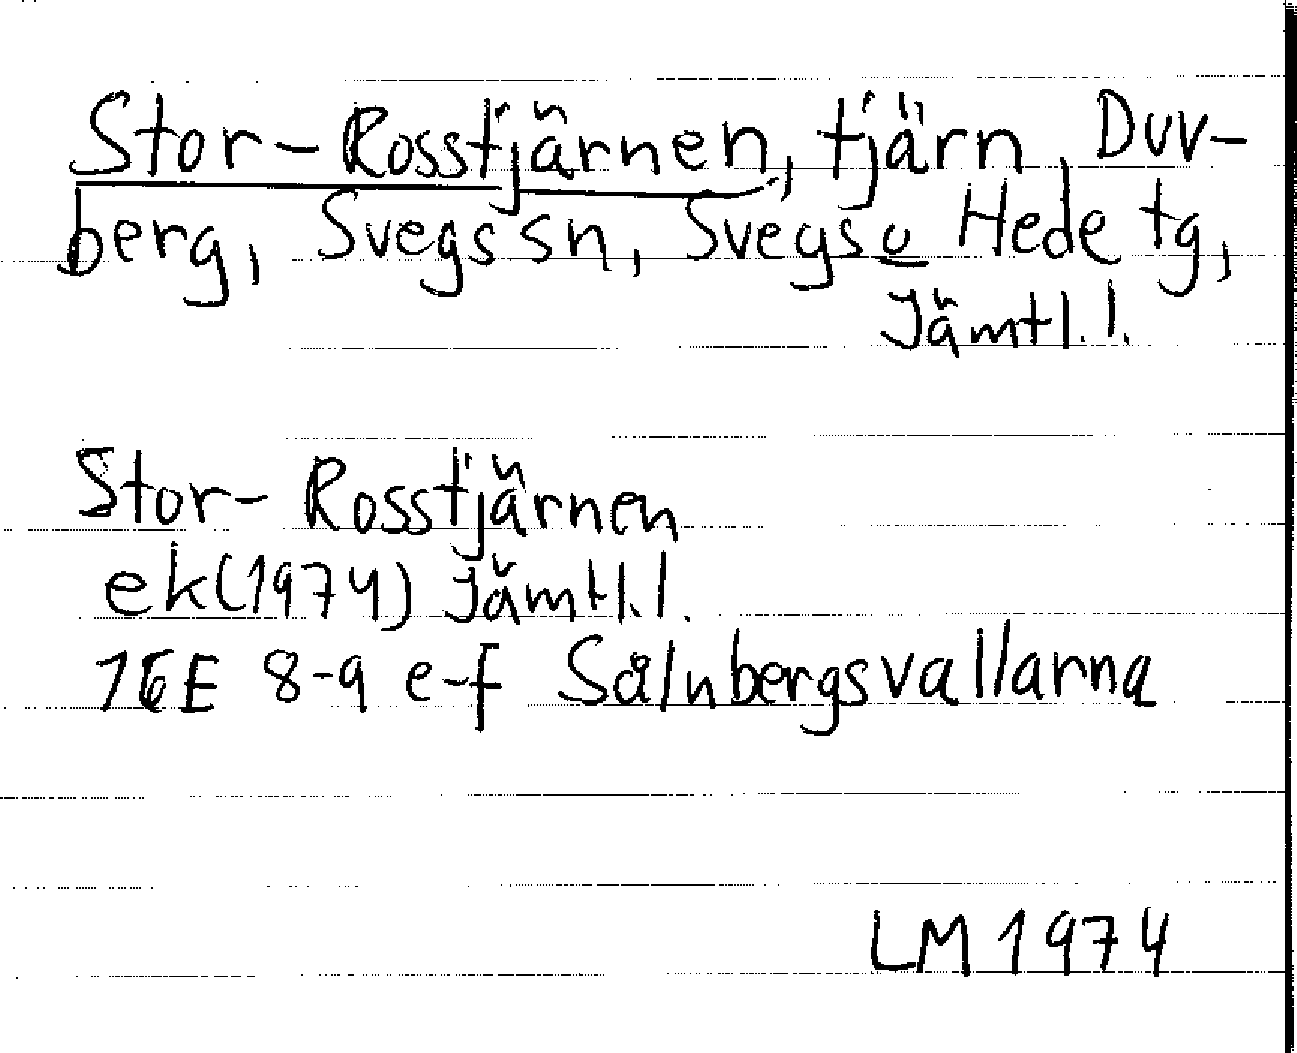 Stor-Rosstjärnen, tjärn, Duv-
berg, Svegs sn, Svegs o Hede tg,
Jämtl. l.
Stor-Rosstjärnen
ek(1974) Jämtl. l.
16E 8-9 e-f Sålnbergsvallarna
LM 1974